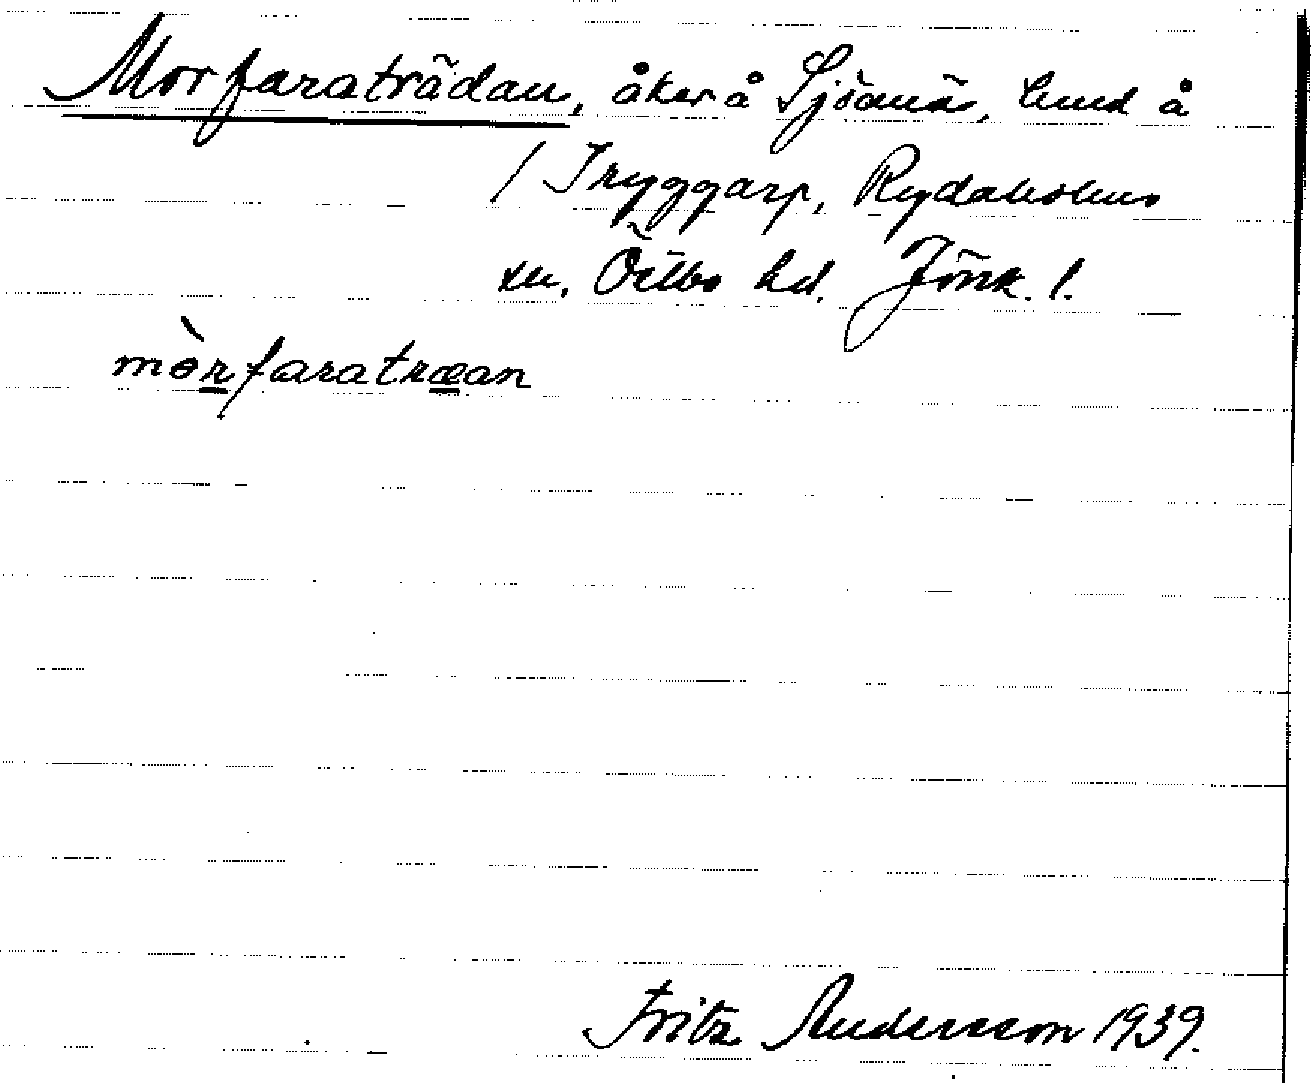 Morfaraträdan, åker å Sjöanä, lund å
/ Tryggarp, Rydaholms
sn, Östbo hd. Jönk. l.
mòrfaratræan
Fritz Andersson 1939.